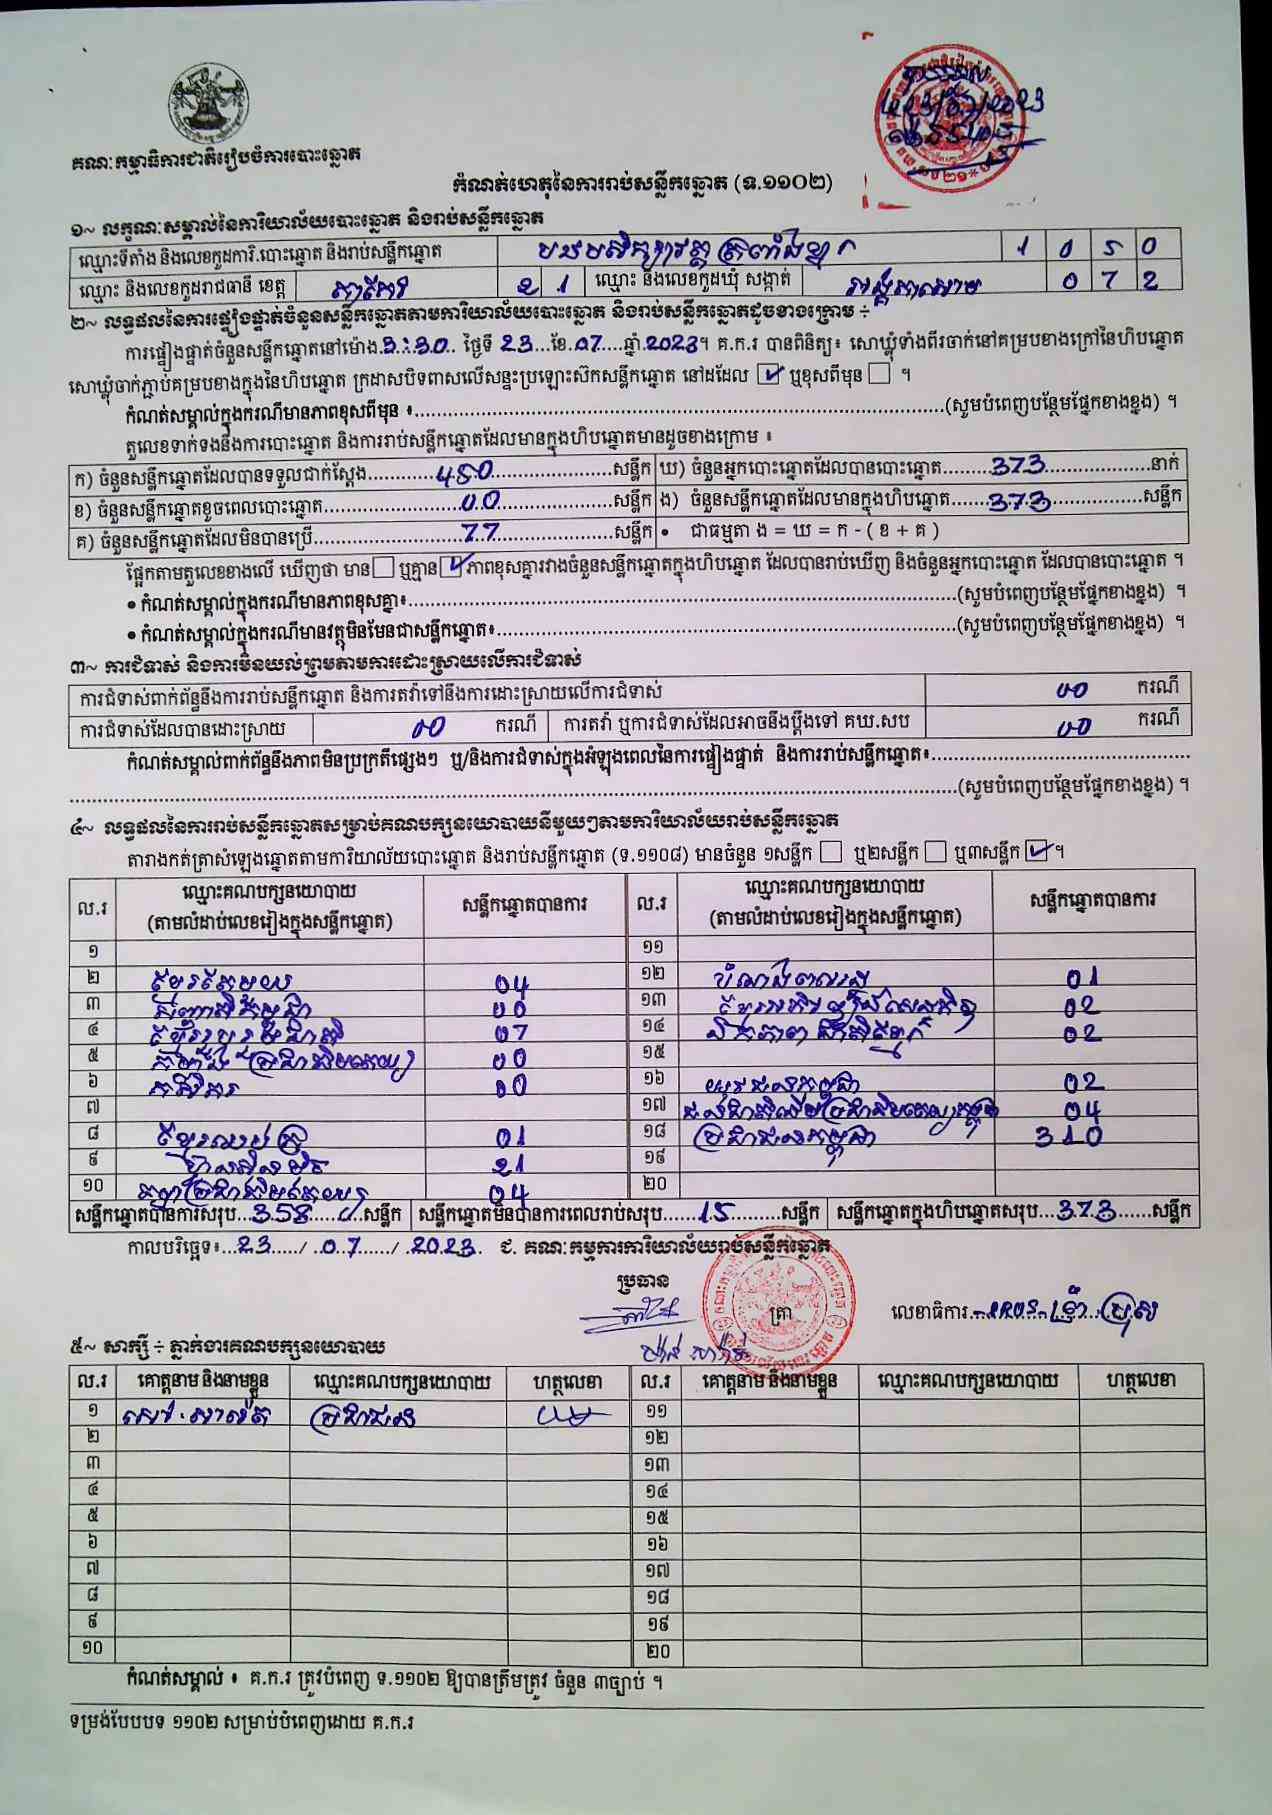 គណៈកម្មាធិការជាតិរៀបចំការបោះឆ្នោត
កំណត់ហេតុនៃការរាប់សន្លឹកឆ្នោត (ទ.១១០២)
១~ លក្ខណៈសម្គាល់នៃការិយាល័យបោះឆ្នោត និងរាប់សន្លឹកឆ្នោត
ឈ្មោះទីតាំង និងលេខកូដការិ.បោះឆ្នោត និងរាប់សន្លឹកឆ្នោត 1 0 5 0
ឈ្មោះ និងលេខកូដរាជធានី ខេត្ត តាកែវ 2 1 ឈ្មោះ និងលេខកូដឃុំ សង្កាត់ 0 7 2
២~ លទ្ធផលនៃការផ្ទៀងផ្ទាត់ចំនួនសន្លឹកឆ្នោតតាមការិយាល័យបោះឆ្នោត និងរាប់សន្លឹកឆ្នោតដូចខាងក្រោម ÷
ការផ្ទៀងផ្ទាត់ចំនួនសន្លឹកឆ្នោតនៅម៉ោង 3:30 ថ្ងៃទី 23 ខែ 07 ឆ្នាំ 2023។ គ.ក.រ បានពិនិត្យ៖ សោឃ្លុំទាំងពីរចាក់នៅគម្របខាងក្រៅនៃហិបឆ្នោត
សោឃ្លុំចាក់ភ្ជាប់គម្របខាងក្នុងនៃហិបឆ្នោត ក្រដាសបិទពាសលើសន្ទះប្រឡោះស៊កសន្លឹកឆ្នោត នៅដដែល ☑ ឬខុសពីមុន ☐ ។
កំណត់សម្គាល់ក្នុងករណីមានភាពខុសពីមុន ៖ (សូមបំពេញបន្ថែមផ្នែកខាងខ្នង) ។
តួលេខទាក់ទងនឹងការបោះឆ្នោត និងការរាប់សន្លឹកឆ្នោតដែលមានក្នុងហិបឆ្នោតមានដូចខាងក្រោម ៖
ក) ចំនួនសន្លឹកឆ្នោតដែលបានទទួលជាក់ស្តែង 450 សន្លឹក ឃ) ចំនួនអ្នកបោះឆ្នោតដែលបានបោះឆ្នោត 373 នាក់
ខ) ចំនួនសន្លឹកឆ្នោតខូចពេលបោះឆ្នោត 00 សន្លឹក ង) ចំនួនសន្លឹកឆ្នោតដែលមានក្នុងហិបឆ្នោត 373 សន្លឹក
គ) ចំនួនសន្លឹកឆ្នោតដែលមិនបានប្រើ 77 សន្លឹក • ជាធម្មតា ង = ឃ = ក - ( ខ + គ )
ផ្អែកតាមតួលេខខាងលើ ឃើញថា មាន ☐ ឬគ្មាន ☑ ភាពខុសគ្នារវាងចំនួនសន្លឹកឆ្នោតក្នុងហិបឆ្នោត ដែលបានរាប់ឃើញ និងចំនួនអ្នកបោះឆ្នោត ដែលបានបោះឆ្នោត ។
• កំណត់សម្គាល់ក្នុងករណីមានភាពខុសគ្នា៖ (សូមបំពេញបន្ថែមផ្នែកខាងខ្នង) ។
• កំណត់សម្គាល់ក្នុងករណីមានវត្ថុមិនមែនជាសន្លឹកឆ្នោត៖ (សូមបំពេញបន្ថែមផ្នែកខាងខ្នង) ។
៣~ ការជំទាស់ និងការមិនយល់ព្រមតាមការដោះស្រាយលើការជំទាស់
ការជំទាស់ពាក់ព័ន្ធនឹងការរាប់សន្លឹកឆ្នោត និងការតវ៉ាទៅនឹងការដោះស្រាយលើការជំទាស់ 00 ករណី
ការជំទាស់ដែលបានដោះស្រាយ 00 ករណី ការតវ៉ា ឬការជំទាស់ដែលអាចនឹងប្តឹងទៅ គឃ.សប 00 ករណី
កំណត់សម្គាល់ពាក់ព័ន្ធនឹងភាពមិនប្រក្រតីផ្សេងៗ ឬ/និងការជំទាស់ក្នុងអំឡុងពេលនៃការផ្ទៀងផ្ទាត់ និងការរាប់សន្លឹកឆ្នោត៖
(សូមបំពេញបន្ថែមផ្នែកខាងខ្នង) ។
៤~ លទ្ធផលនៃការរាប់សន្លឹកឆ្នោតសម្រាប់គណបក្សនយោបាយនីមួយៗតាមការិយាល័យរាប់សន្លឹកឆ្នោត
តារាងកត់ត្រាសំឡេងឆ្នោតតាមការិយាល័យបោះឆ្នោត និងរាប់សន្លឹកឆ្នោត (ទ.១១០៨) មានចំនួន ១សន្លឹក ☐ ឬ២សន្លឹក ☐ ឬ៣សន្លឹក ☑ ។
ល.រ ឈ្មោះគណបក្សនយោបាយ (តាមលំដាប់លេខរៀងក្នុងសន្លឹកឆ្នោត) សន្លឹកឆ្នោតបានការ ល.រ ឈ្មោះគណបក្សនយោបាយ (តាមលំដាប់លេខរៀងក្នុងសន្លឹកឆ្នោត) សន្លឹកឆ្នោតបានការ
១ ១១
២ ខ្មែរតែមួយ 04 ១២ 01
៣ 00 ១៣ 02
៤ 07 ១៤ 02
៥ 00 ១៥
៦ កសិករ 10 ១៦ យុវជនកម្ពុជា 02
៧ ១៧ 04
៨ 01 ១៨ ប្រជាជនកម្ពុជា 310
៩ ហ៊្វុនស៊ិនប៉ិច 21 ១៩
១០ 04 ២០
សន្លឹកឆ្នោតបានការសរុប 358 សន្លឹក សន្លឹកឆ្នោតមិនបានការពេលរាប់សរុប 15 សន្លឹក សន្លឹកឆ្នោតក្នុងហិបឆ្នោតសរុប 373 សន្លឹក
កាលបរិច្ឆេទ៖ 23 / 07 / 2023 ជ. គណៈកម្មការការិយាល័យរាប់សន្លឹកឆ្នោត
ប្រធាន
ត្រា លេខាធិការ
៥~ សាក្សី ÷ ភ្នាក់ងារគណបក្សនយោបាយ
ល.រ គោត្តនាម និងនាមខ្លួន ឈ្មោះគណបក្សនយោបាយ ហត្ថលេខា ល.រ គោត្តនាម និងនាមខ្លួន ឈ្មោះគណបក្សនយោបាយ ហត្ថលេខា
១ ប្រជាជន ១១
២ ១២
៣ ១៣
៤ ១៤
៥ ១៥
៦ ១៦
៧ ១៧
៨ ១៨
៩ ១៩
១០ ២០
កំណត់សម្គាល់ ៖ គ.ក.រ ត្រូវបំពេញ ទ.១១០២ ឱ្យបានត្រឹមត្រូវ ចំនួន ៣ច្បាប់ ។
ទម្រង់បែបបទ ១១០២ សម្រាប់បំពេញដោយ គ.ក.រ